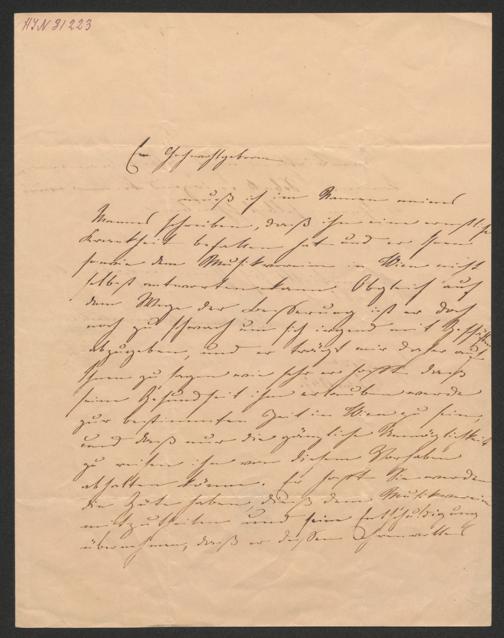 HIN 31223
Ew Hochwohlgeboren
muß ich im Namen meines
Mannes schreiben, daß ihn eine ernstliche
Krankheit befallen hat und er Ihnen
sowie dem Musikverein in Wien nicht
selbst antworten kann. Obgleich auf
dem Wege der Besserung ist er doch
noch zu schwach um sich irgend mit Geschäften
abzugeben, und er trägt mir daher auf
Ihnen zu sagen wie sehr er hofft daß
seine Gesundheit ihm erlauben werde
zur bestimmten Zeit in Wien zu sein,
und daß nur die gänzliche Unmöglichkeit
zu reisen ihn von diesem Vorhaben
abhalten könne. Er hofft Sie werden
die Güte haben, dieß dem Musikverein
mitzutheilen und seine Entschuldigung
übernehmen, daß er dessen ehrenvolles